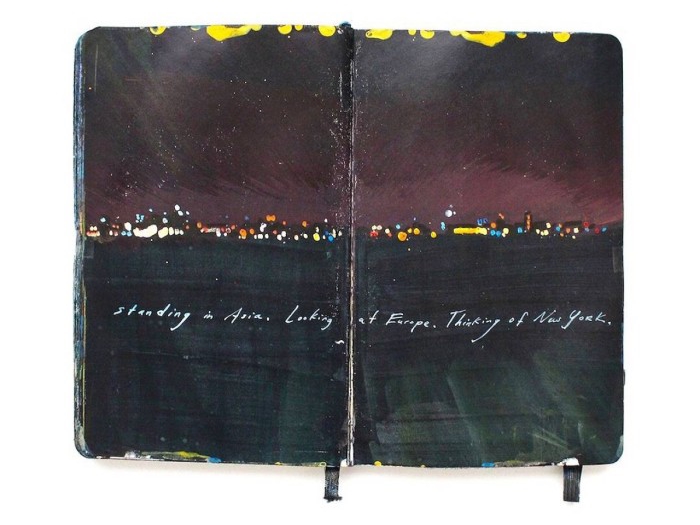 standing in Asia. Looking at Europe. Thinking of New York.